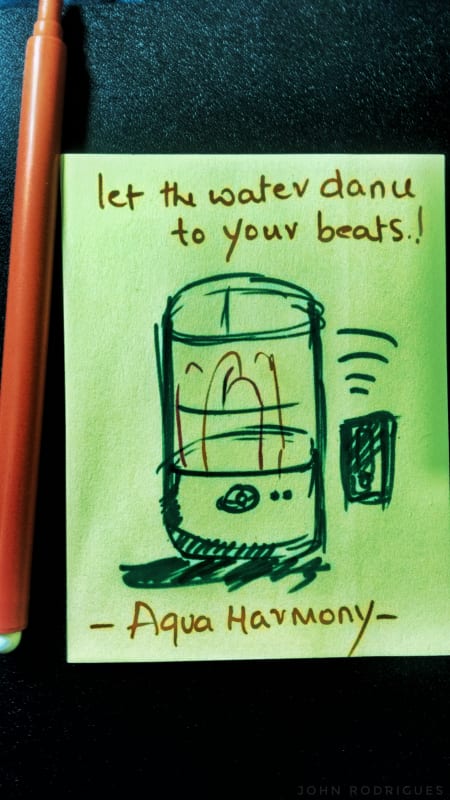 let the water dance
to your beats.!
- Aqua Harmony -
JOHN RODRIGUES